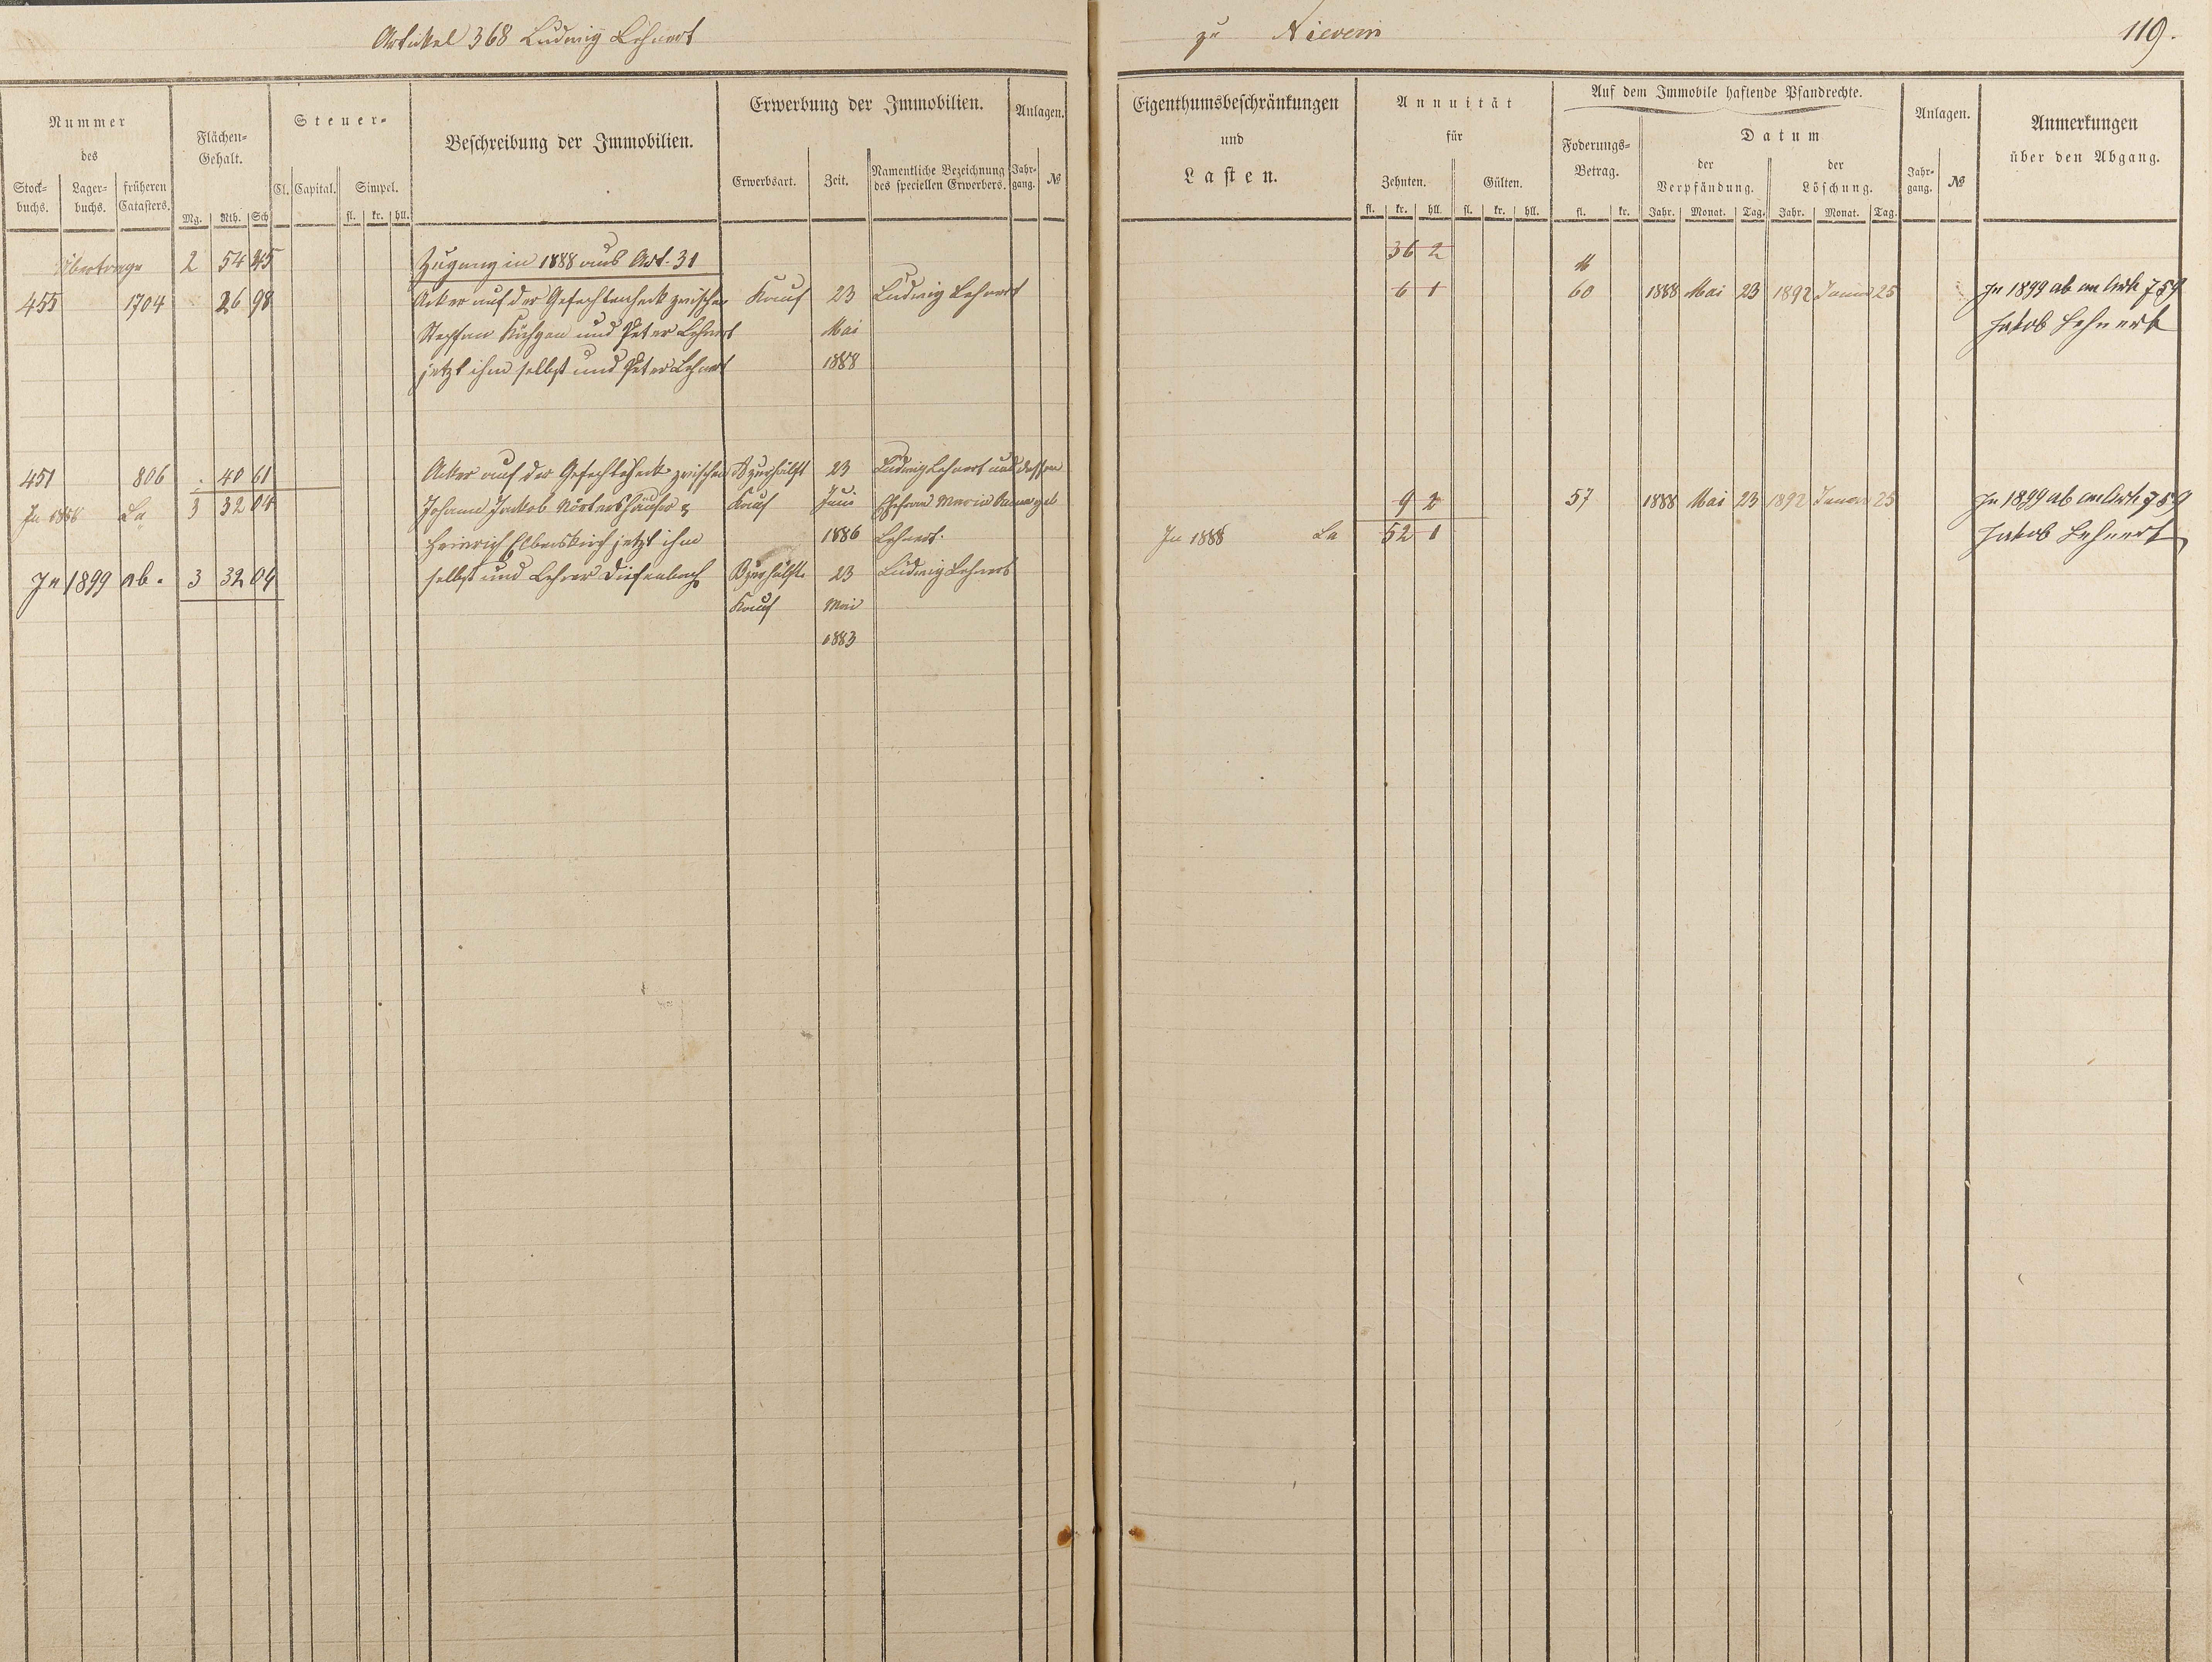 Artikel 368 Ludwig Lehnert
zu Nievern
119.
Nummer
des
Stock-
buchs.
Lager-
buchs.
früheren
Catasters.
Flächen-
Gehalt.
Mg. Rth. Sch
Steuer-
Cl. Capital. Simpel.
fl. kr. hll.
Beschreibung der Immobilien.
Erwerbung der Immobilien.
Erwerbsart. Zeit.
Namentliche Bezeichnung
des speciellen Erwerbers.
Anlagen.
Jahr-
gang.
№
Eigenthumsbeschränkungen
und
Lasten.
Annuität
für
Zehnten. Gülten.
fl. kr. hll. fl. kr. hll.
Auf dem Immobile haftende Pfandrechte.
Foderungs-
Betrag.
fl. kr.
Datum
der
Verpfändung.
der
Löschung.
Jahr. Monat. Tag. Jahr. Monat. Tag.
Anlagen.
Jahr-
gang.
№
Anmerkungen
über den Abgang.
Übertrage 2 54 45 Zugang in 1888 aus Art. 31
36 2
455 1704 26 98 Acker auf der Gefechtenheck zwischen Kauf 23 Ludwig Lehnert
6 1 60 1888 Mai 23 1892 Januar 25 In 1899 ab an Art. 759
und Peter Lehnert Mai
Jakob Lehnert
jetzt ihm selbst und Peter Lehnert 1888
451 806 . 40 61 Acker auf der zwischen zur Hälfte 23 Ludwig Lehnert und dessen
In 1888 La 3 32 04 Johann Jakob Nörtershäuser & Kauf Juni Ehefrau Maria Anna geb
9 2 57 1888 Mai 23 1892 Januar 25 In 1899 ab an Art. 759
Heinrich Elbeskirch jetzt ihm 1886 Lehnert.
In 1888 La 52 1 Jakob Lehnert
In 1899 ab. 3 32 04 selbst und Lehrer Diefenbach B zur Hälfte 23 Ludwig Lehnert
Kauf Mai
1883